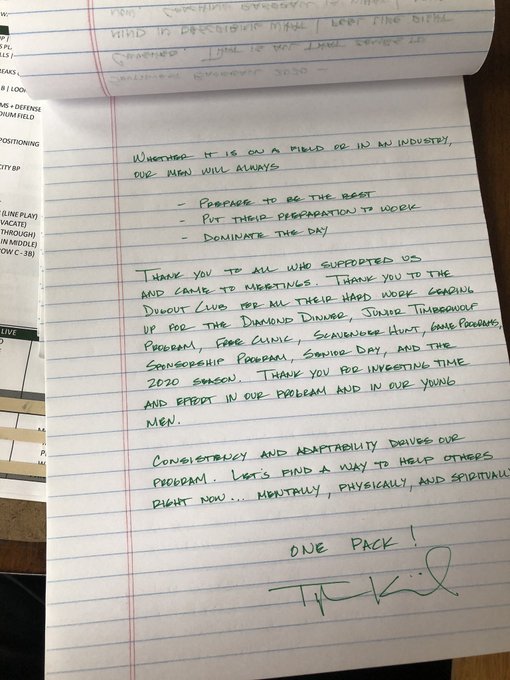 WHETHER IT IS ON A FIELD OR IN AN INDUSTRY,
OUR MEN WILL ALWAYS
- PREPARE TO BE THE BEST
- PUT THEIR PREPARATION TO WORK
- DOMINATE THE DAY
THANK YOU TO ALL WHO SUPPORTED US
AND CAME TO MEETINGS. THANK YOU TO THE
DUGOUT CLUB FOR ALL THEIR HARD WORK GEARING
UP FOR THE DIAMOND DINNER, JUNIOR TIMBERWOLF
PROGRAM, FREE CLINIC, SCAVENGER HUNT, GAME PROGRAMS,
SPONSORSHIP PROGRAM, SENIOR DAY, AND THE
2020 SEASON. THANK YOU FOR INVESTING TIME
AND EFFORT IN OUR PROGRAM AND IN OUR YOUNG
MEN.
CONSISTENCY AND ADAPTABILITY DRIVES OUR
PROGRAM. LET'S FIND A WAY TO HELP OTHERS
RIGHT NOW... MENTALLY, PHYSICALLY, AND SPIRITUALL
ONE PACK!
MS + DEFENSE
DIUM FIELD
POSITIONING
CITY BP
(LINE PLAY)
VACATE)
THROUGH)
IN MIDDLE)
OW C - 3B)
LIVE